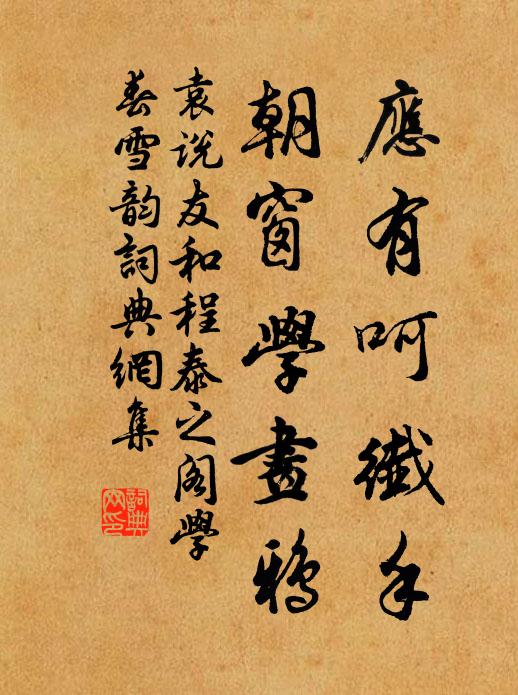 應有呵纖手
朝窗學畫鴉
袁说友和程泰之阁學
春雪韵詞典網集
詞典网印